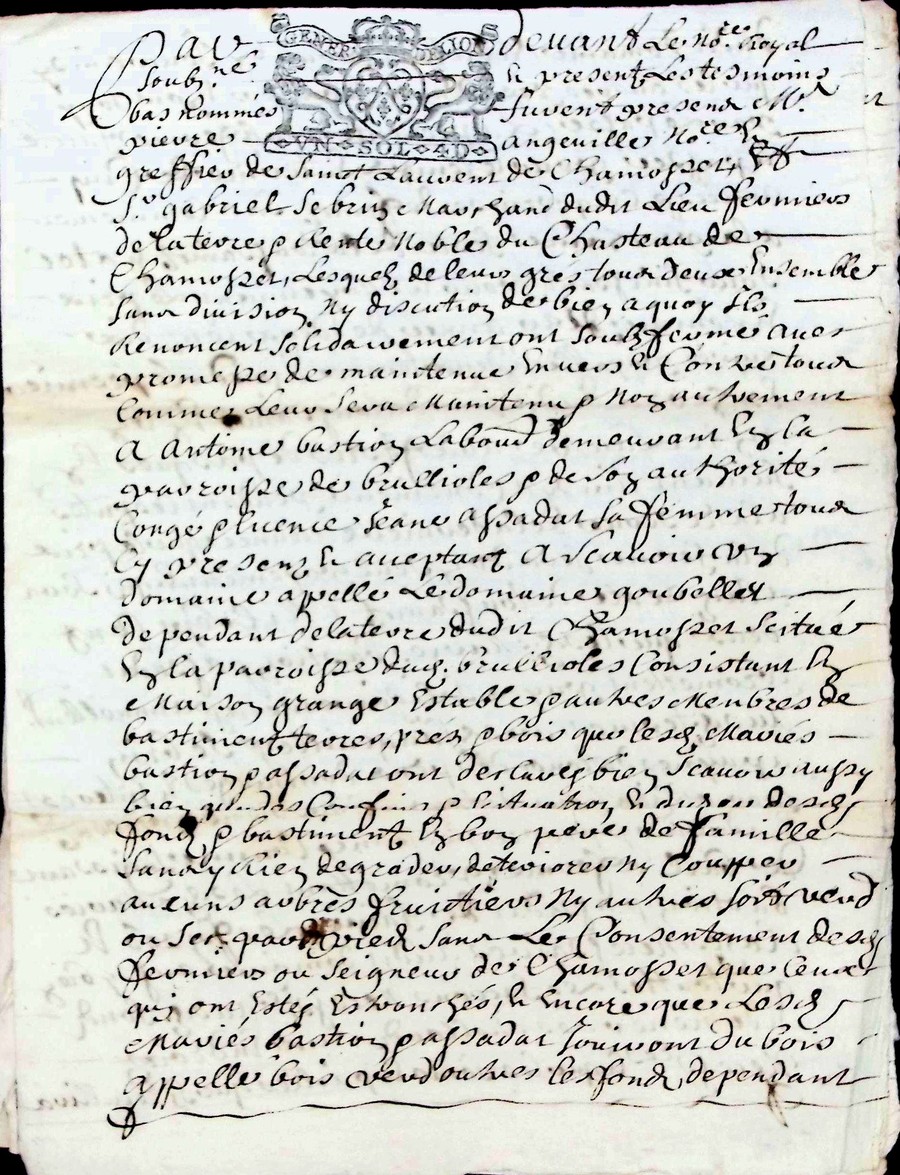 Par devant Le no.re Royal
soubz.né & present Les tesmoins
bas nommés furent presens M.r
pierre angeville No.re &
GENER LION
VN·SOL·4D
greffier de Saint Laurent de Chamosset, &
S.r gabriel Lebrun Marchand dudit Lieu fermiers
de la terre & Rente Noble du Chasteau de
Chamosset, Lesquelz de leurs gres tous deux Ensemble
sans division Ny discution de bien a quoy ils
Renoncent solidairement ont soubzfermé avec
promesse de maintenue Envers & Contre tous
Comme Leur sera Maintenu & Non autrement
A Antoine bastion Laboureur demeurant En la
parroisse de brullioles & de son authorité
Congé & licence Jeane assadat sa femme tous
Cy presens & aceptant A Scavoir un
domaine appellé Le domaine goubellet
dependant de la terre dudit Chamosset scitué
En la parroisse dud. brullioles Consistant En
Maison grange Establé & autres Membres de
bastiment terres, prés & bois que lesd. Mariés
bastion & assadat ont desclaré bien Scavoir aussy
bien que les Confins & scituation & du desd.
fondz & bastiment En bon pere de famille
sans y Rien degrader, deteriorer Ny Coupper
aucuns arbres fruictiers Ny autres soit verd
ou sec par pied sans Le Consentement desd.
fermiers ou Seigneur de Chamosset que ceux
qui ont Estés Estronchés, & Encore que Lesd.
Mariés bastion & assadat Jouiront du bois
appellé bois verd outres les fondz dependant